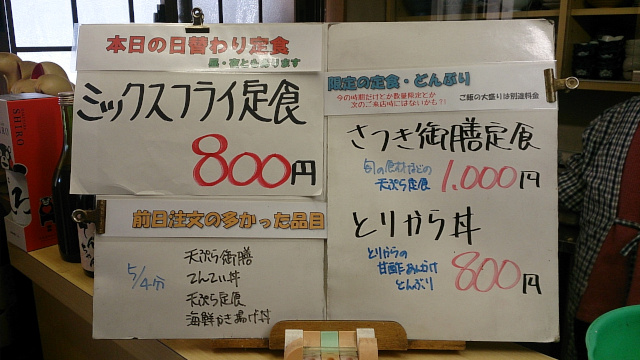 本日の日替わり定食
昼・夜ともあります
ミックスフライ定食
800円
前日注文の多かった品目
5/4分
天ぷら御膳
てんてい丼
天ぷら定食
海鮮かき揚げ丼
限定の定食・どんぶり
今の時期だけとか数量限定とか
次のご来店時にはないかも?!
ご飯の大盛りは別途料金
さつき御膳定食
旬の食材などの
天ぷら定食
1,000円
とりから丼
とりからの
甘酢あんかけ
どんぶり
800円